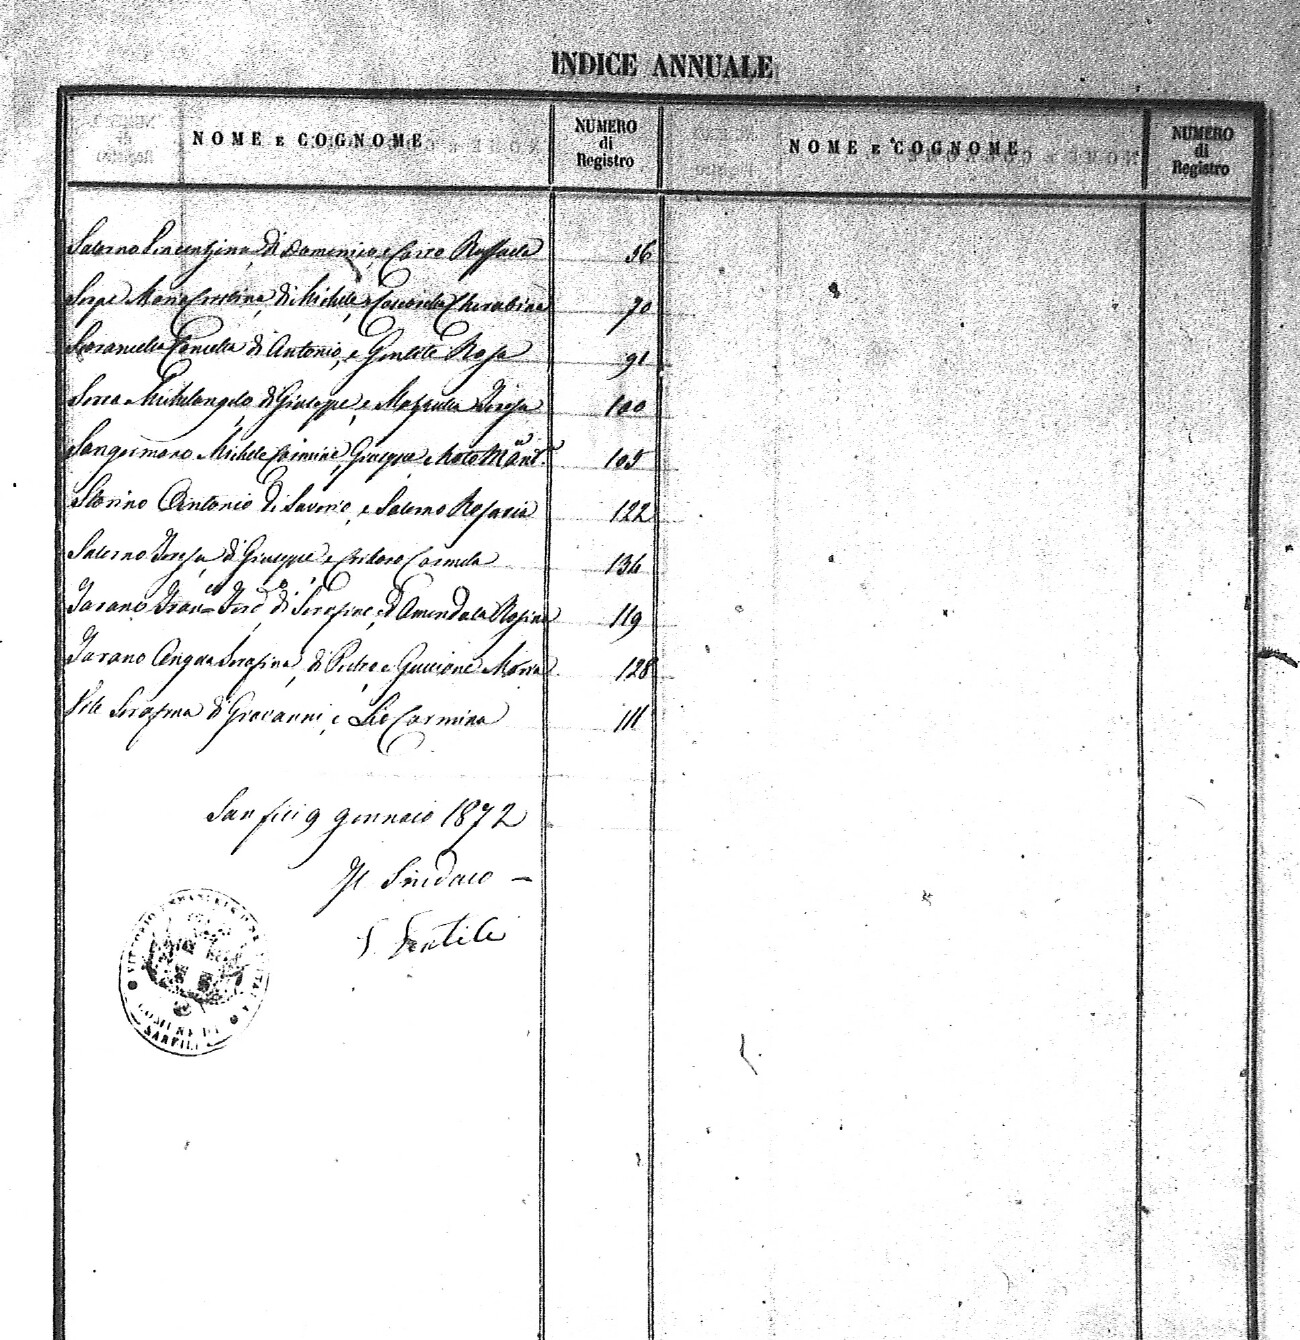 INDICE ANNUALE
NOME E COGNOME
NUMERO
di
Registro
NOME E COGNOME
NUMERO
di
Registro
Salerno Vincenzina di Domenico e Carro Raffaela 36
Serpe Maria Cristina, di Michele, e Cherubina 70
di Antonio, e Gentile Rosa 91
Michelangelo di Giuseppe e Mazzulla Teresa 100
Sangermano Michele Carmine, Giuseppe e 105
Storino Antonio di Saverio, e Salerno Rosaria 122
Salerno Teresa di Giuseppe e Carmela 136
Tarano di Serafino, e d'Amendola Rosina 119
Tarano Angela Serafina, di Pietro e Guccione Maria 128
Serafina di Giovanni, e Lio Carmina 111
San fili 9 gennaio 1872
Il Sindaco
Gentile
VITTORIO EMANUELE II RE D'ITALIA
COMUNE DI
SANFILI